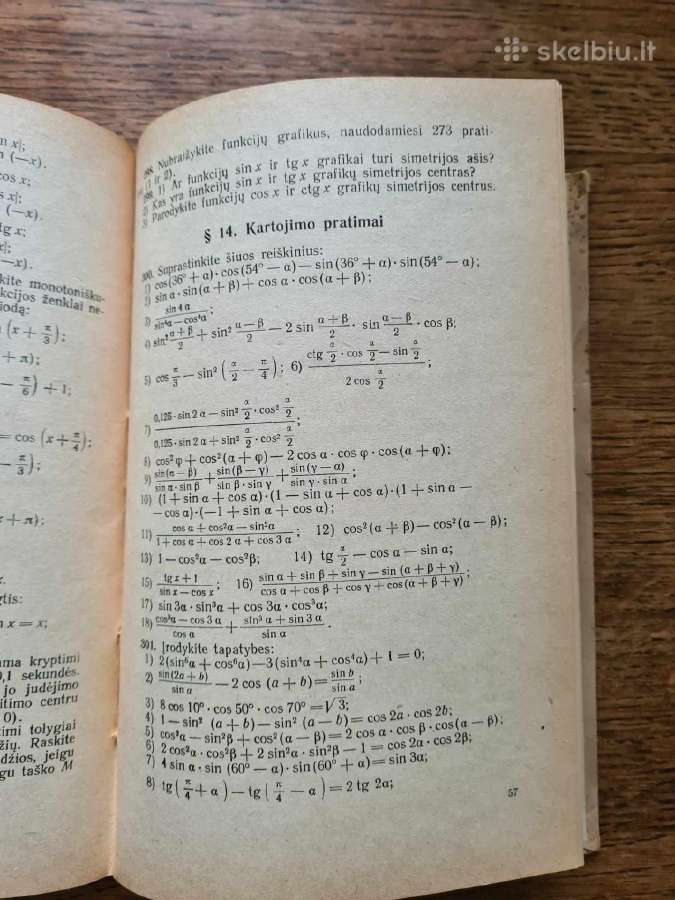 skelbiu.lt
n x|;
n (—x).
os x;
os x|;
(—x).
tg x;
x|;
—x).
kite monotonišku-
kcijos ženklai ne-
iodą:
(x + π/3);
+ π);
— π/6) + 1;
= cos (x + π/4);
— π/3);
x + π);
x.
gtis:
n x = x;
ama kryptimi
0,1 sekundės.
jo judėjimo
itimo centru
0).
timi tolygiai
žių. Raskite
džios, jeigu
gu taško M
298. Nubraižykite funkcijų grafikus, naudodamiesi 273 prati-
(1 ir 2).
299. 1) Ar funkcijų sin x ir tg x grafikai turi simetrijos ašis?
2) Kas yra funkcijų sin x ir tg x grafikų simetrijos centras?
3) Parodykite funkcijų cos x ir ctg x grafikų simetrijos centrus.
§ 14. Kartojimo pratimai
300. Suprastinkite šiuos reiškinius:
1) cos(36° + α)·cos(54° — α) — sin(36° + α)·sin(54° — α);
2) sin α·sin(α + β) + cos α·cos(α + β);
3) sin 4α / (sin⁴α — cos⁴α);
4) sin² (α + β)/2 + sin² (α — β)/2 — 2 sin (α + β)/2 · sin (α — β)/2 · cos β;
5) cos π/3 — sin² (α/2 — π/4); 6) (ctg α/2 · cos α/2 — sin α/2) / (2 cos α/2);
7) (0,125·sin 2α — sin² α/2 · cos² α/2) / (0,125·sin 2α + sin² α/2 · cos² α/2);
8) cos² φ + cos² (α + φ) — 2 cos α · cos φ · cos (α + φ);
9) sin(α — β)/(sin α·sin β) + sin(β — γ)/(sin β·sin γ) + sin(γ — α)/(sin γ·sin α);
10) (1 + sin α + cos α)·(1 — sin α + cos α)·(1 + sin α —
— cos α)·(—1 + sin α + cos α);
11) (cos α + cos 2α — sin²α) / (1 + cos α + cos 2α + cos 3α); 12) cos² (α + β) — cos² (α — β);
13) 1 — cos²α — cos²β; 14) tg α/2 — cos α — sin α;
15) (tg x + 1)/(sin x — cos x); 16) (sin α + sin β + sin γ — sin (α + β + γ)) / (cos α + cos β + cos γ + cos (α + β + γ));
17) sin 3α · sin³α + cos 3α · cos³α;
18) (cos³α — cos 3α)/cos α + (sin³ α + sin 3α)/sin α.
301. Įrodykite tapatybes:
1) 2(sin⁶α + cos⁶α) — 3(sin⁴α + cos⁴α) + 1 = 0;
2) sin(2a + b)/sin a — 2 cos (a + b) = sin b/sin a;
3) 8 cos 10° · cos 50° · cos 70° = √3;
4) 1 — sin² (a + b) — sin² (a — b) = cos 2a · cos 2b;
5) cos²α — sin²β + cos² (α — β) = 2 cos α · cos β · cos (α — β);
6) 2 cos²α · cos²β + 2 sin²α · sin²β — 1 = cos 2α · cos 2β;
7) 4 sin α · sin (60° — α) · sin (60° + α) = sin 3α;
8) tg (π/4 + α) — tg (π/4 — α) = 2 tg 2α;
57